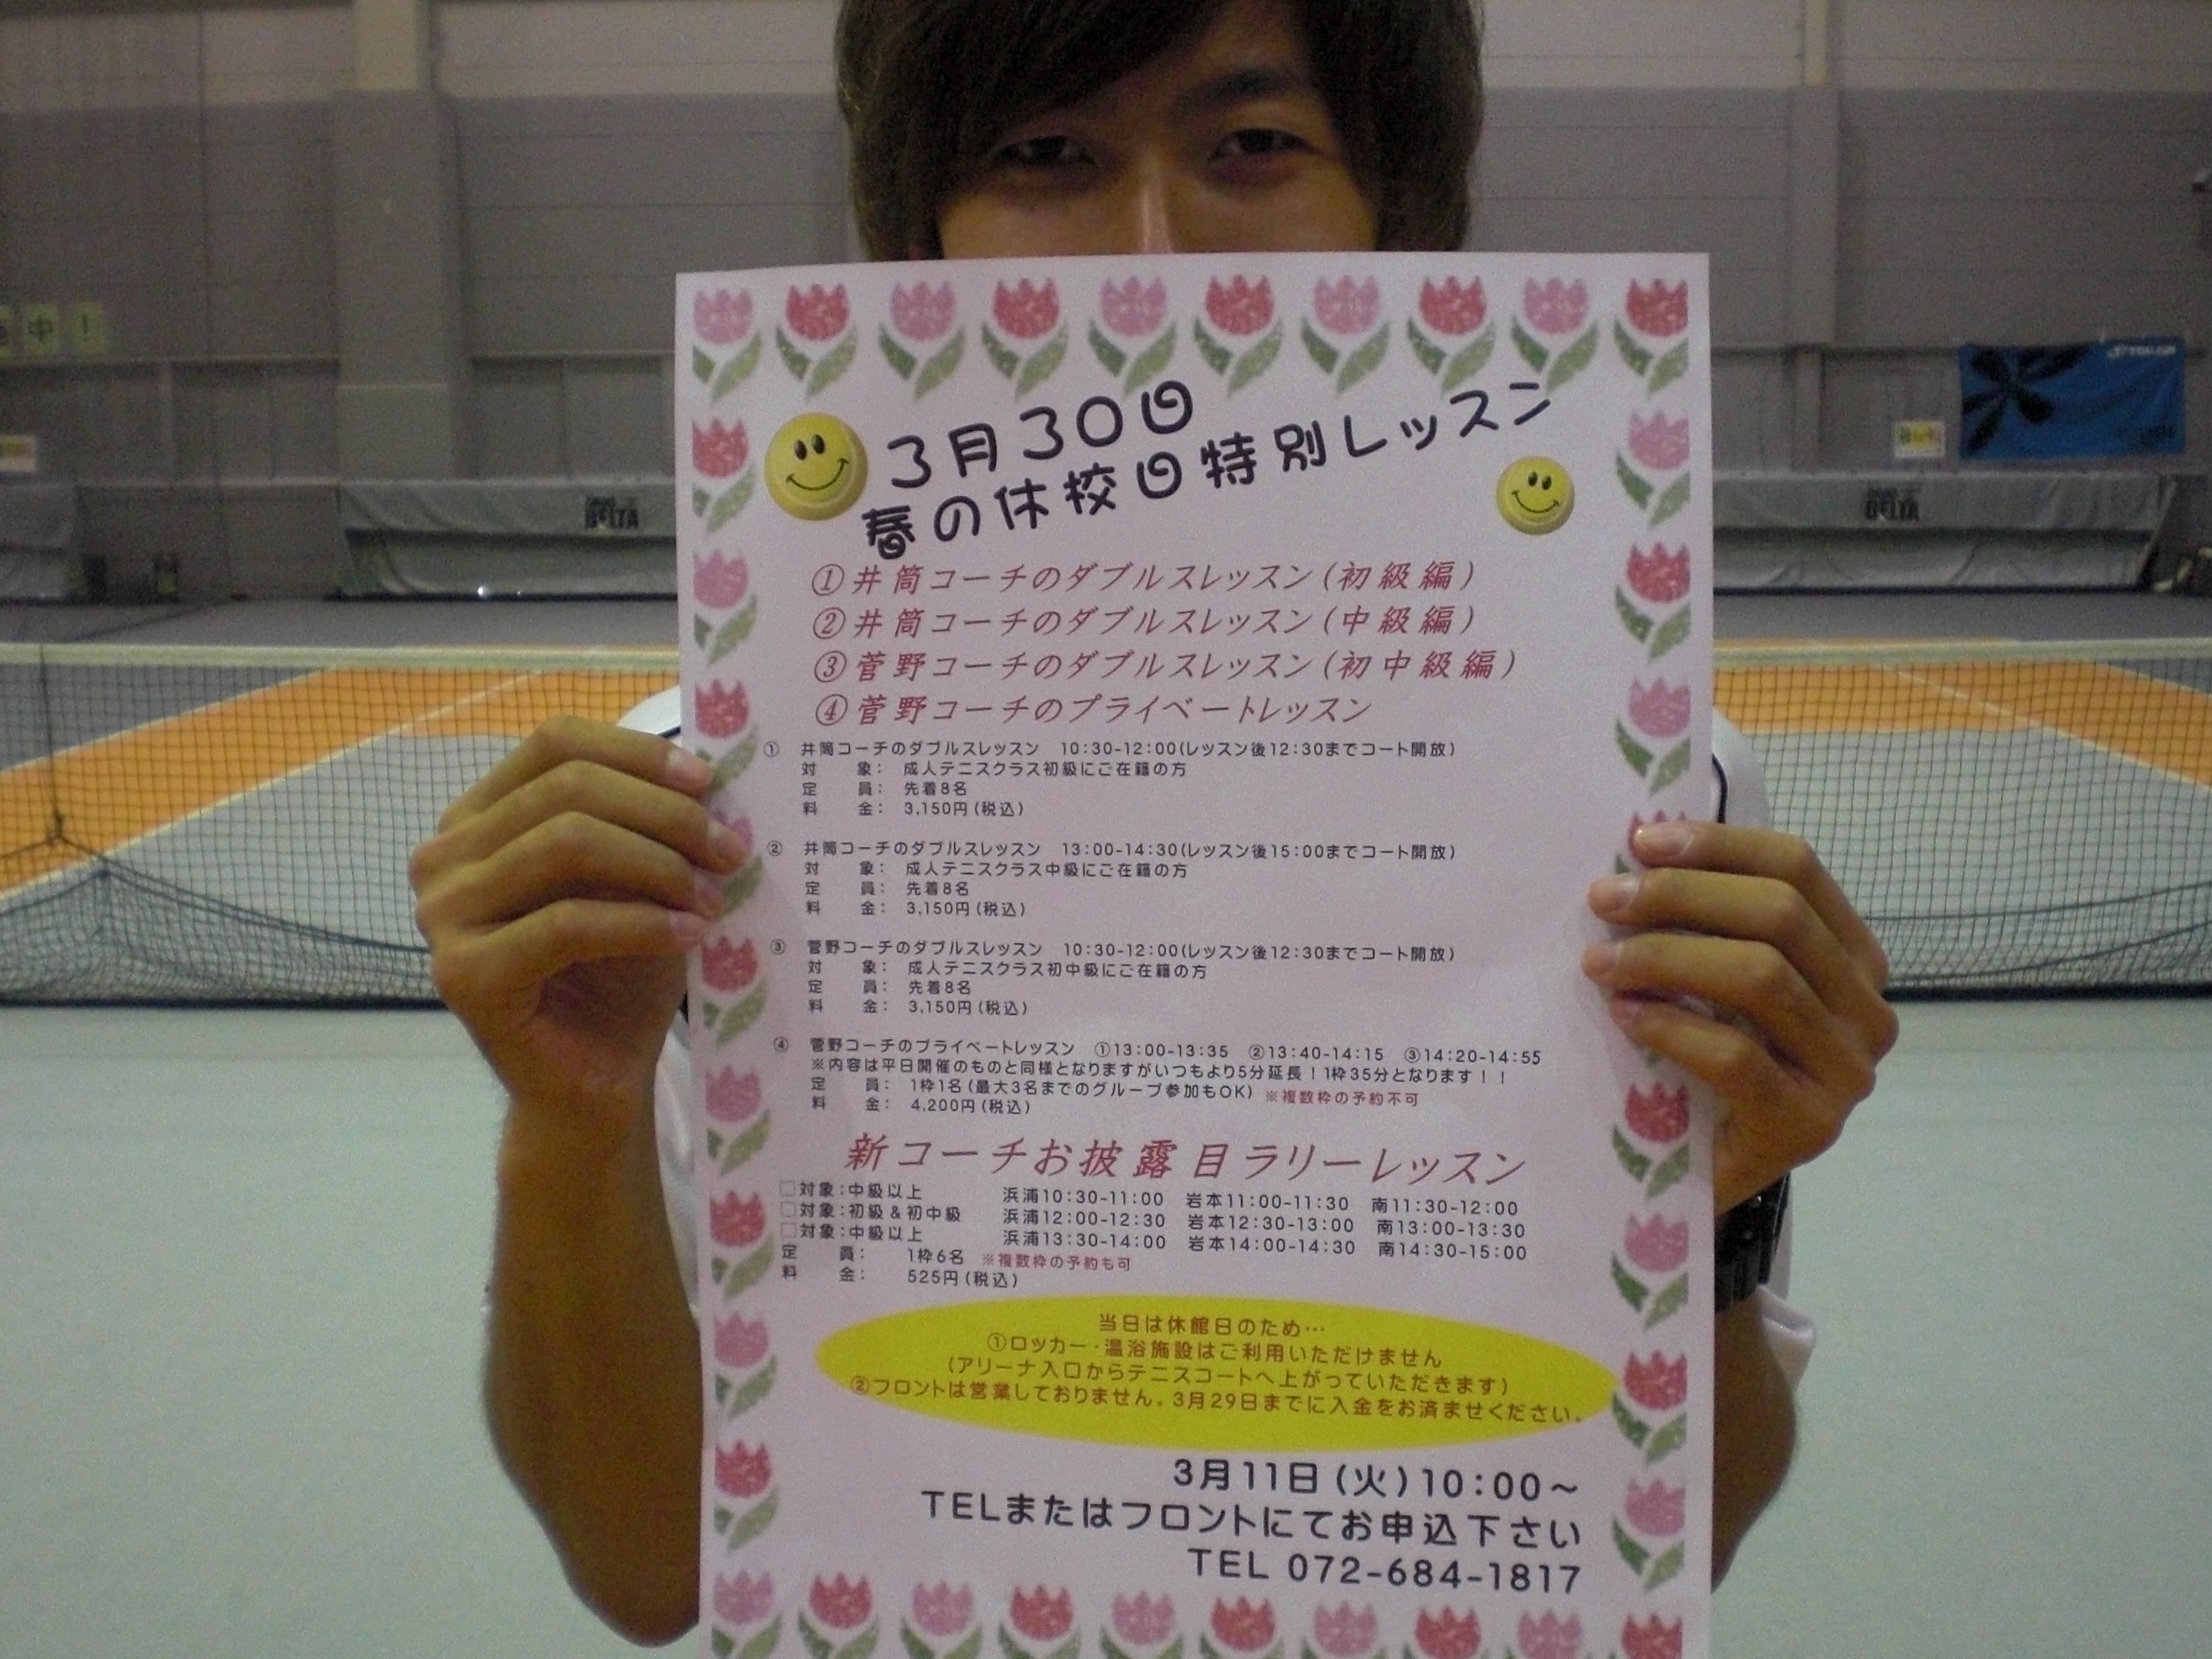 中！
DELTA
DELTA
3月30日
春の休校日特別レッスン
①井筒コーチのダブルスレッスン(初級編)
②井筒コーチのダブルスレッスン(中級編)
③菅野コーチのダブルスレッスン(初中級編)
④菅野コーチのプライベートレッスン
① 井筒コーチのダブルスレッスン 10:30-12:00(レッスン後12:30までコート開放)
対 象： 成人テニスクラス初級にご在籍の方
定 員： 先着8名
料 金： 3,150円(税込)
② 井筒コーチのダブルスレッスン 13:00-14:30(レッスン後15:00までコート開放)
対 象： 成人テニスクラス中級にご在籍の方
定 員： 先着8名
料 金： 3,150円(税込)
③ 菅野コーチのダブルスレッスン 10:30-12:00(レッスン後12:30までコート開放)
対 象： 成人テニスクラス初中級にご在籍の方
定 員： 先着8名
料 金： 3,150円(税込)
④ 菅野コーチのプライベートレッスン ①13:00-13:35 ②13:40-14:15 ③14:20-14:55
※内容は平日開催のものと同様となりますがいつもより5分延長！1枠35分となります！！
定 員： 1枠1名(最大3名までのグループ参加もOK) ※複数枠の予約不可
料 金： 4,200円(税込)
新コーチお披露目ラリーレッスン
□対象：中級以上 浜浦10:30-11:00 岩本11:00-11:30 南11:30-12:00
□対象：初級＆初中級 浜浦12:00-12:30 岩本12:30-13:00 南13:00-13:30
□対象：中級以上 浜浦13:30-14:00 岩本14:00-14:30 南14:30-15:00
定 員： 1枠6名 ※複数枠の予約も可
料 金： 525円(税込)
当日は休館日のため…
①ロッカー・温浴施設はご利用いただけません
(アリーナ入口からテニスコートへ上がっていただきます)
②フロントは営業しておりません。3月29日までに入金をお済ませください。
3月11日(火)10:00～
TELまたはフロントにてお申込下さい
TEL 072-684-1817